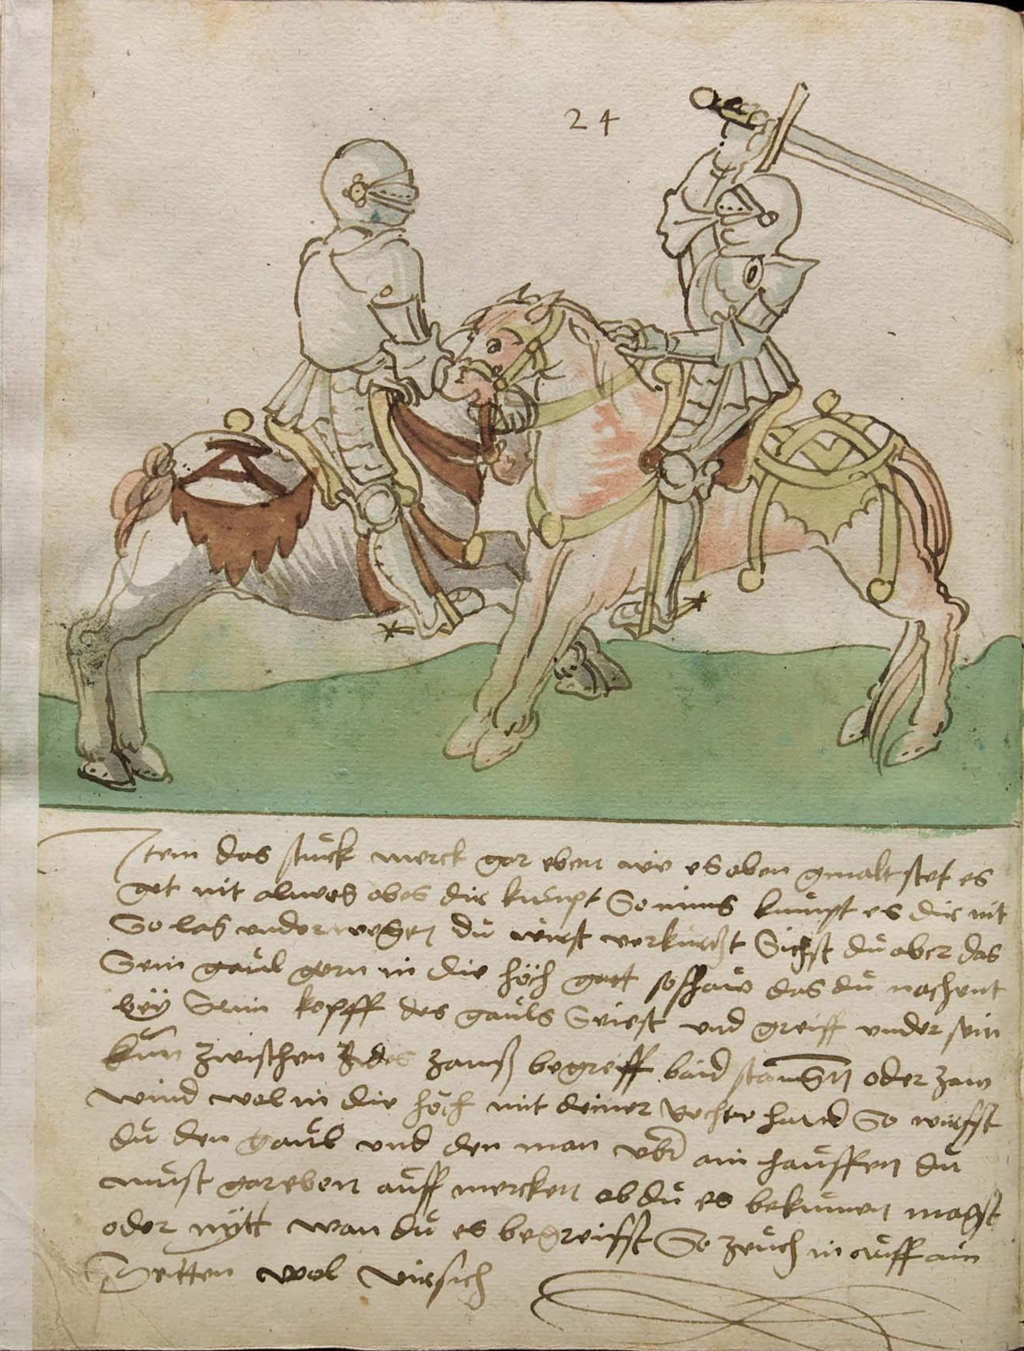 24
Item das stuck merck gar eben wie es oben gmalt stet es
get nit alweg obes dir kumpt So nims kumpt es dir nit
So las underwegen du wirst verkurtzt Sichst du aber das
Sein gaul gern in die höch gatt so schaw das du nachent
bey Seim kopff des gauls Seiest und greiff under sein
kün zwischen des zanß begreiff baid stangen oder zam
wind wol in die höch mit deiner rechte hand So wirfft
du den gaul und den man vber ain hauffen du
must gar eben auff mercken ob du es bekumen magst
oder nytt wan du es begreifft So zeuch in auff ain
Seitten wol virsich